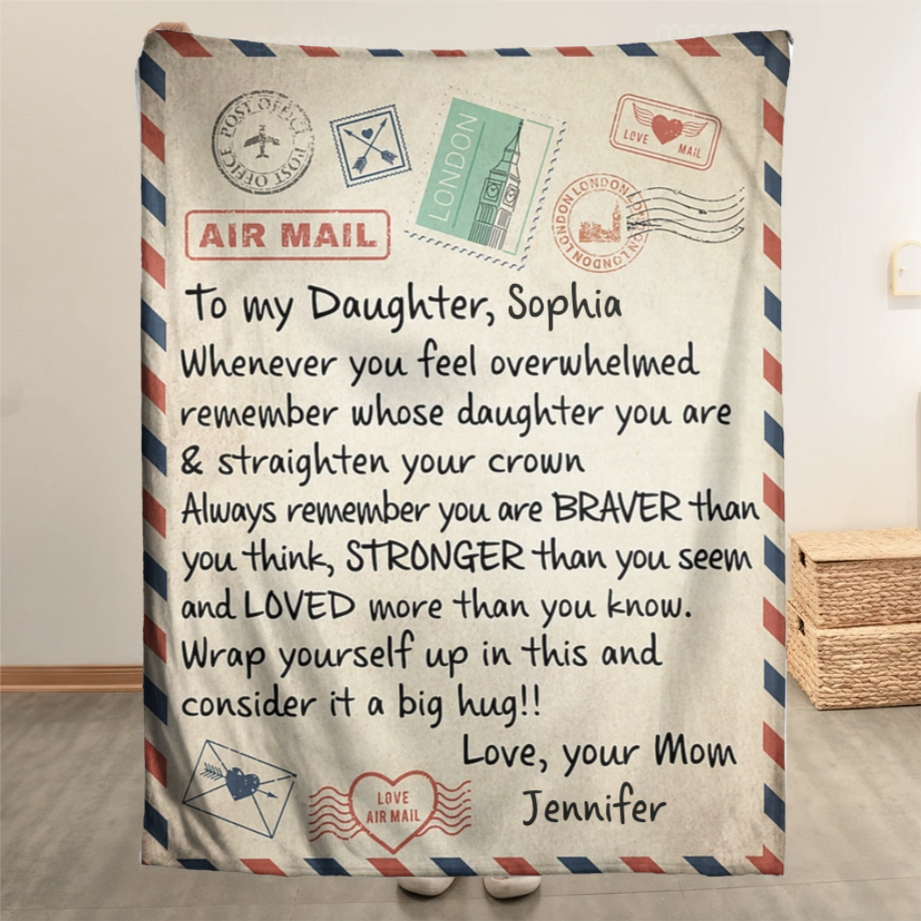 POST OFFICE POST OFFICE
LONDON
LOVE MAIL
LONDON LONDON LONDON LONDON
AIR MAIL
To my Daughter, Sophia
Whenever you feel overwhelmed
remember whose daughter you are
& straighten your crown
Always remember you are BRAVER than
you think, STRONGER than you seem
and LOVED more than you know.
Wrap yourself up in this and
consider it a big hug!!
Love, your Mom
Jennifer
LOVE
AIR MAIL